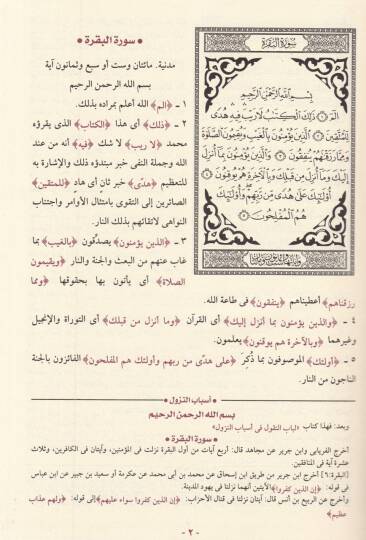 سورة البقرة
بِسْمِ اللَّهِ الرَّحْمَٰنِ الرَّحِيمِ
الٓمٓ ۝ ذَٰلِكَ الْكِتَٰبُ لَا رَيْبَ فِيهِ هُدًى
لِلْمُتَّقِينَ ۝ الَّذِينَ يُؤْمِنُونَ بِالْغَيْبِ وَيُقِيمُونَ الصَّلَوٰةَ
وَمِمَّا رَزَقْنَٰهُمْ يُنفِقُونَ ۝ وَالَّذِينَ يُؤْمِنُونَ بِمَا أُنزِلَ
إِلَيْكَ وَمَا أُنزِلَ مِن قَبْلِكَ وَبِالْآخِرَةِ هُمْ يُوقِنُونَ ۝
أُوْلَٰئِكَ عَلَىٰ هُدًى مِّن رَّبِّهِمْ وَأُوْلَٰئِكَ
هُمُ الْمُفْلِحُونَ ۝
● سورة البقرة ●
مدنية. مائتان وست أو سبع وثمانون آية
بسم الله الرحمن الرحيم
١ - ﴿الم﴾ الله أعلم بمراده بذلك.
٢ - ﴿ذلك﴾ أى هذا ﴿الكتاب﴾ الذى يقرؤه
محمد ﴿لا ريب﴾ لا شك ﴿فيه﴾ أنه من عند
الله وجملة النفى خبر مبتدؤه ذلك والإشارة به
للتعظيم ﴿هدًى﴾ خبر ثان أى هاد ﴿للمتقين﴾
الصائرين إلى التقوى بامتثال الأوامر واجتناب
النواهى لاتقائهم بذلك النار.
٣ - ﴿الذين يؤمنون﴾ يصدّقون ﴿بالغيب﴾ بما
غاب عنهم من البعث والجنة والنار ﴿ويقيمون
الصلاة﴾ أى يأتون بها بحقوقها ﴿ومما
رزقناهم﴾ أعطيناهم ﴿ينفقون﴾ فى طاعة الله.
٤ - ﴿والذين يؤمنون بما أنزل إليك﴾ أى القرآن ﴿وما أنزل من قبلك﴾ أى التوراة والإنجيل
وغيرهما ﴿وبالآخرة هم يوقنون﴾ يعلمون.
٥ - ﴿أولئك﴾ الموصوفون بما ذُكِرَ ﴿على هدًى من ربهم وأولئك هم المفلحون﴾ الفائزون بالجنة
الناجون من النار.
● أسباب النزول ●
بسم الله الرحمن الرحيم
وبعد: فهذا كتاب «لباب النقول فى أسباب النزول»
● سورة البقرة ●
أخرج الفريابى وابن جرير عن مجاهد قال: أربع آيات من أول البقرة نزلت فى المؤمنين، وآيتان فى الكافرين، وثلاث
عشرة آية فى المنافقين.
[البقرة:٦] أخرج ابن جرير من طريق ابن إسحاق عن محمد بن أبى محمد عن عكرمة أو سعيد بن جبير عن ابن عباس
فى قوله: ﴿إن الذين كفروا﴾ الآيتين أنهما نزلتا فى يهود المدينة.
وأخرج عن الربيع بن أنس قال: آيتان نزلتا فى قتال الأحزاب: ﴿إن الذين كفروا سواء عليهم﴾ إلى قوله: ﴿ولهم عذاب
عظيم﴾
- ٢ -